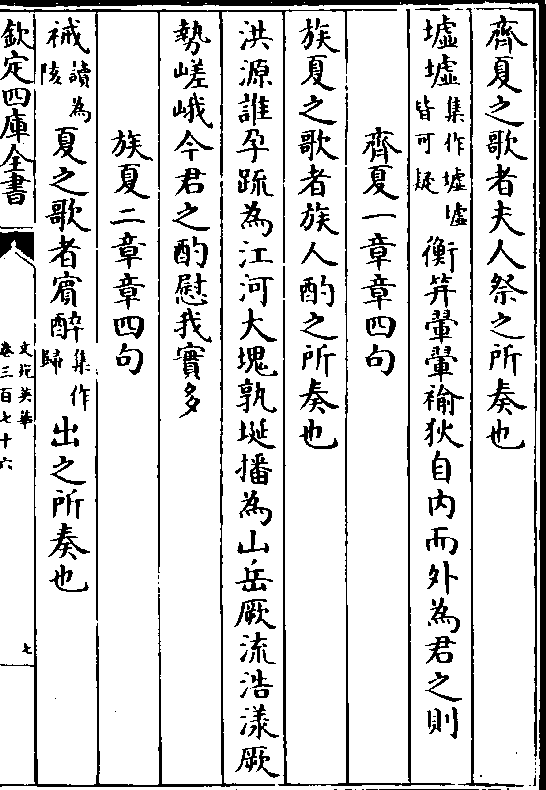 齊夏之歌者夫人祭之所奏也
墟墟集作墟墟皆可疑衡笄翬翬褕狄自内而外為君之則
齊夏一章章四句
族夏之歌者族人酌之所奏也
洪源誰孕疏為江河大塊孰埏播為山岳厥流浩漾厥
勢嵯峨今君之酌慰我實多
族夏二章章四句
祴讀為陔夏之歌者賓醉集作歸出之所奏也
欽定四庫全書
文苑英華
卷三百七十六
七